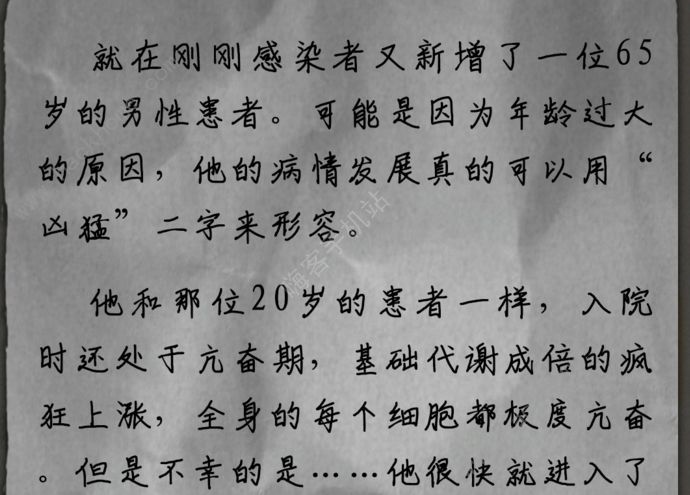 就在刚刚感染者又新增了一位65
岁的男性患者。可能是因为年龄过大
的原因，他的病情发展真的可以用“
凶猛”二字来形容。
他和那位20岁的患者一样，入院
时还处于亢奋期，基础代谢成倍的疯
狂上涨，全身的每个细胞都极度亢奋
。但是不幸的是……他很快就进入了
嗨客手机站